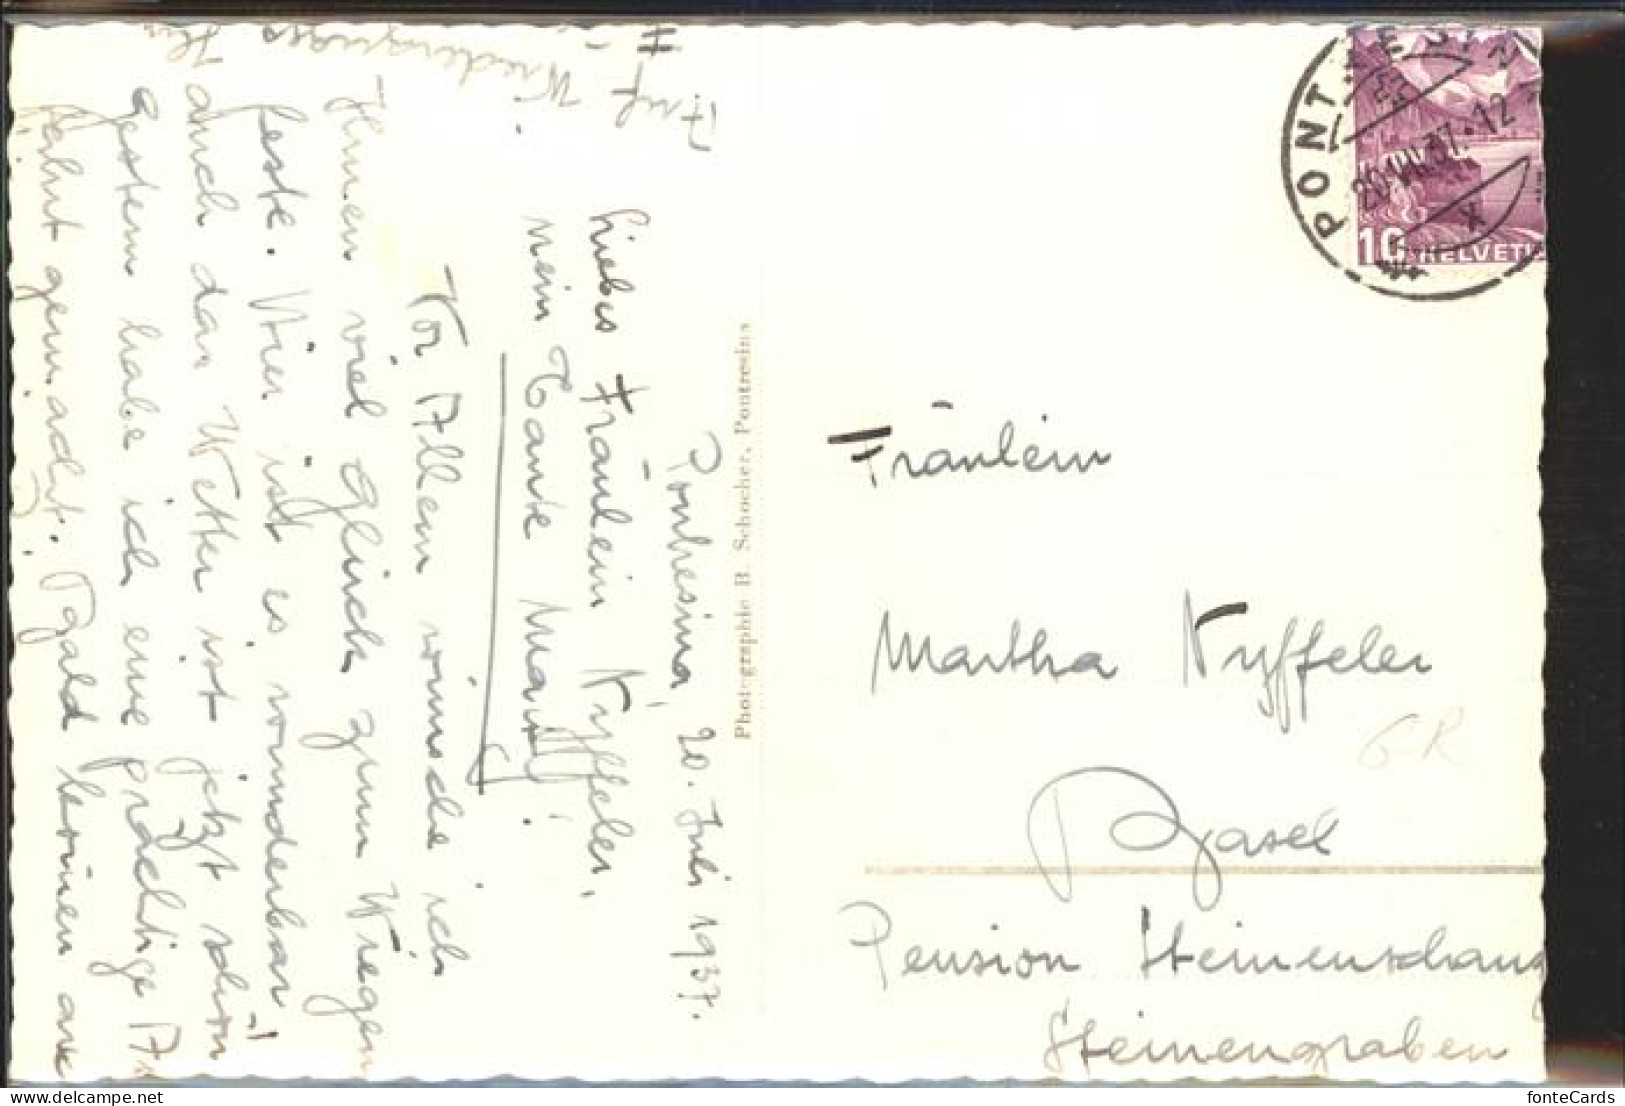 Pontresina, 20. Juli 1937.
Liebes Fräulein Nyffeler,
mein Tante Marty!
Vor Allem wünsche ich
Ihnen viel Glück zum Wiegen
feste. Hier ist es wunderbar
auch das Wetter ist jetzt schön
gestern habe ich eine prächtige
fahrt gemacht. Bald kommen
Auf
Photographie B. Schocher, Pontresina
PONTRESINA
20.VII.37.12
10 HELVETIA
Fräulein
Martha Nyffeler
Basel
Pension Steinenschanz
Steinengraben
GR
fonteCards